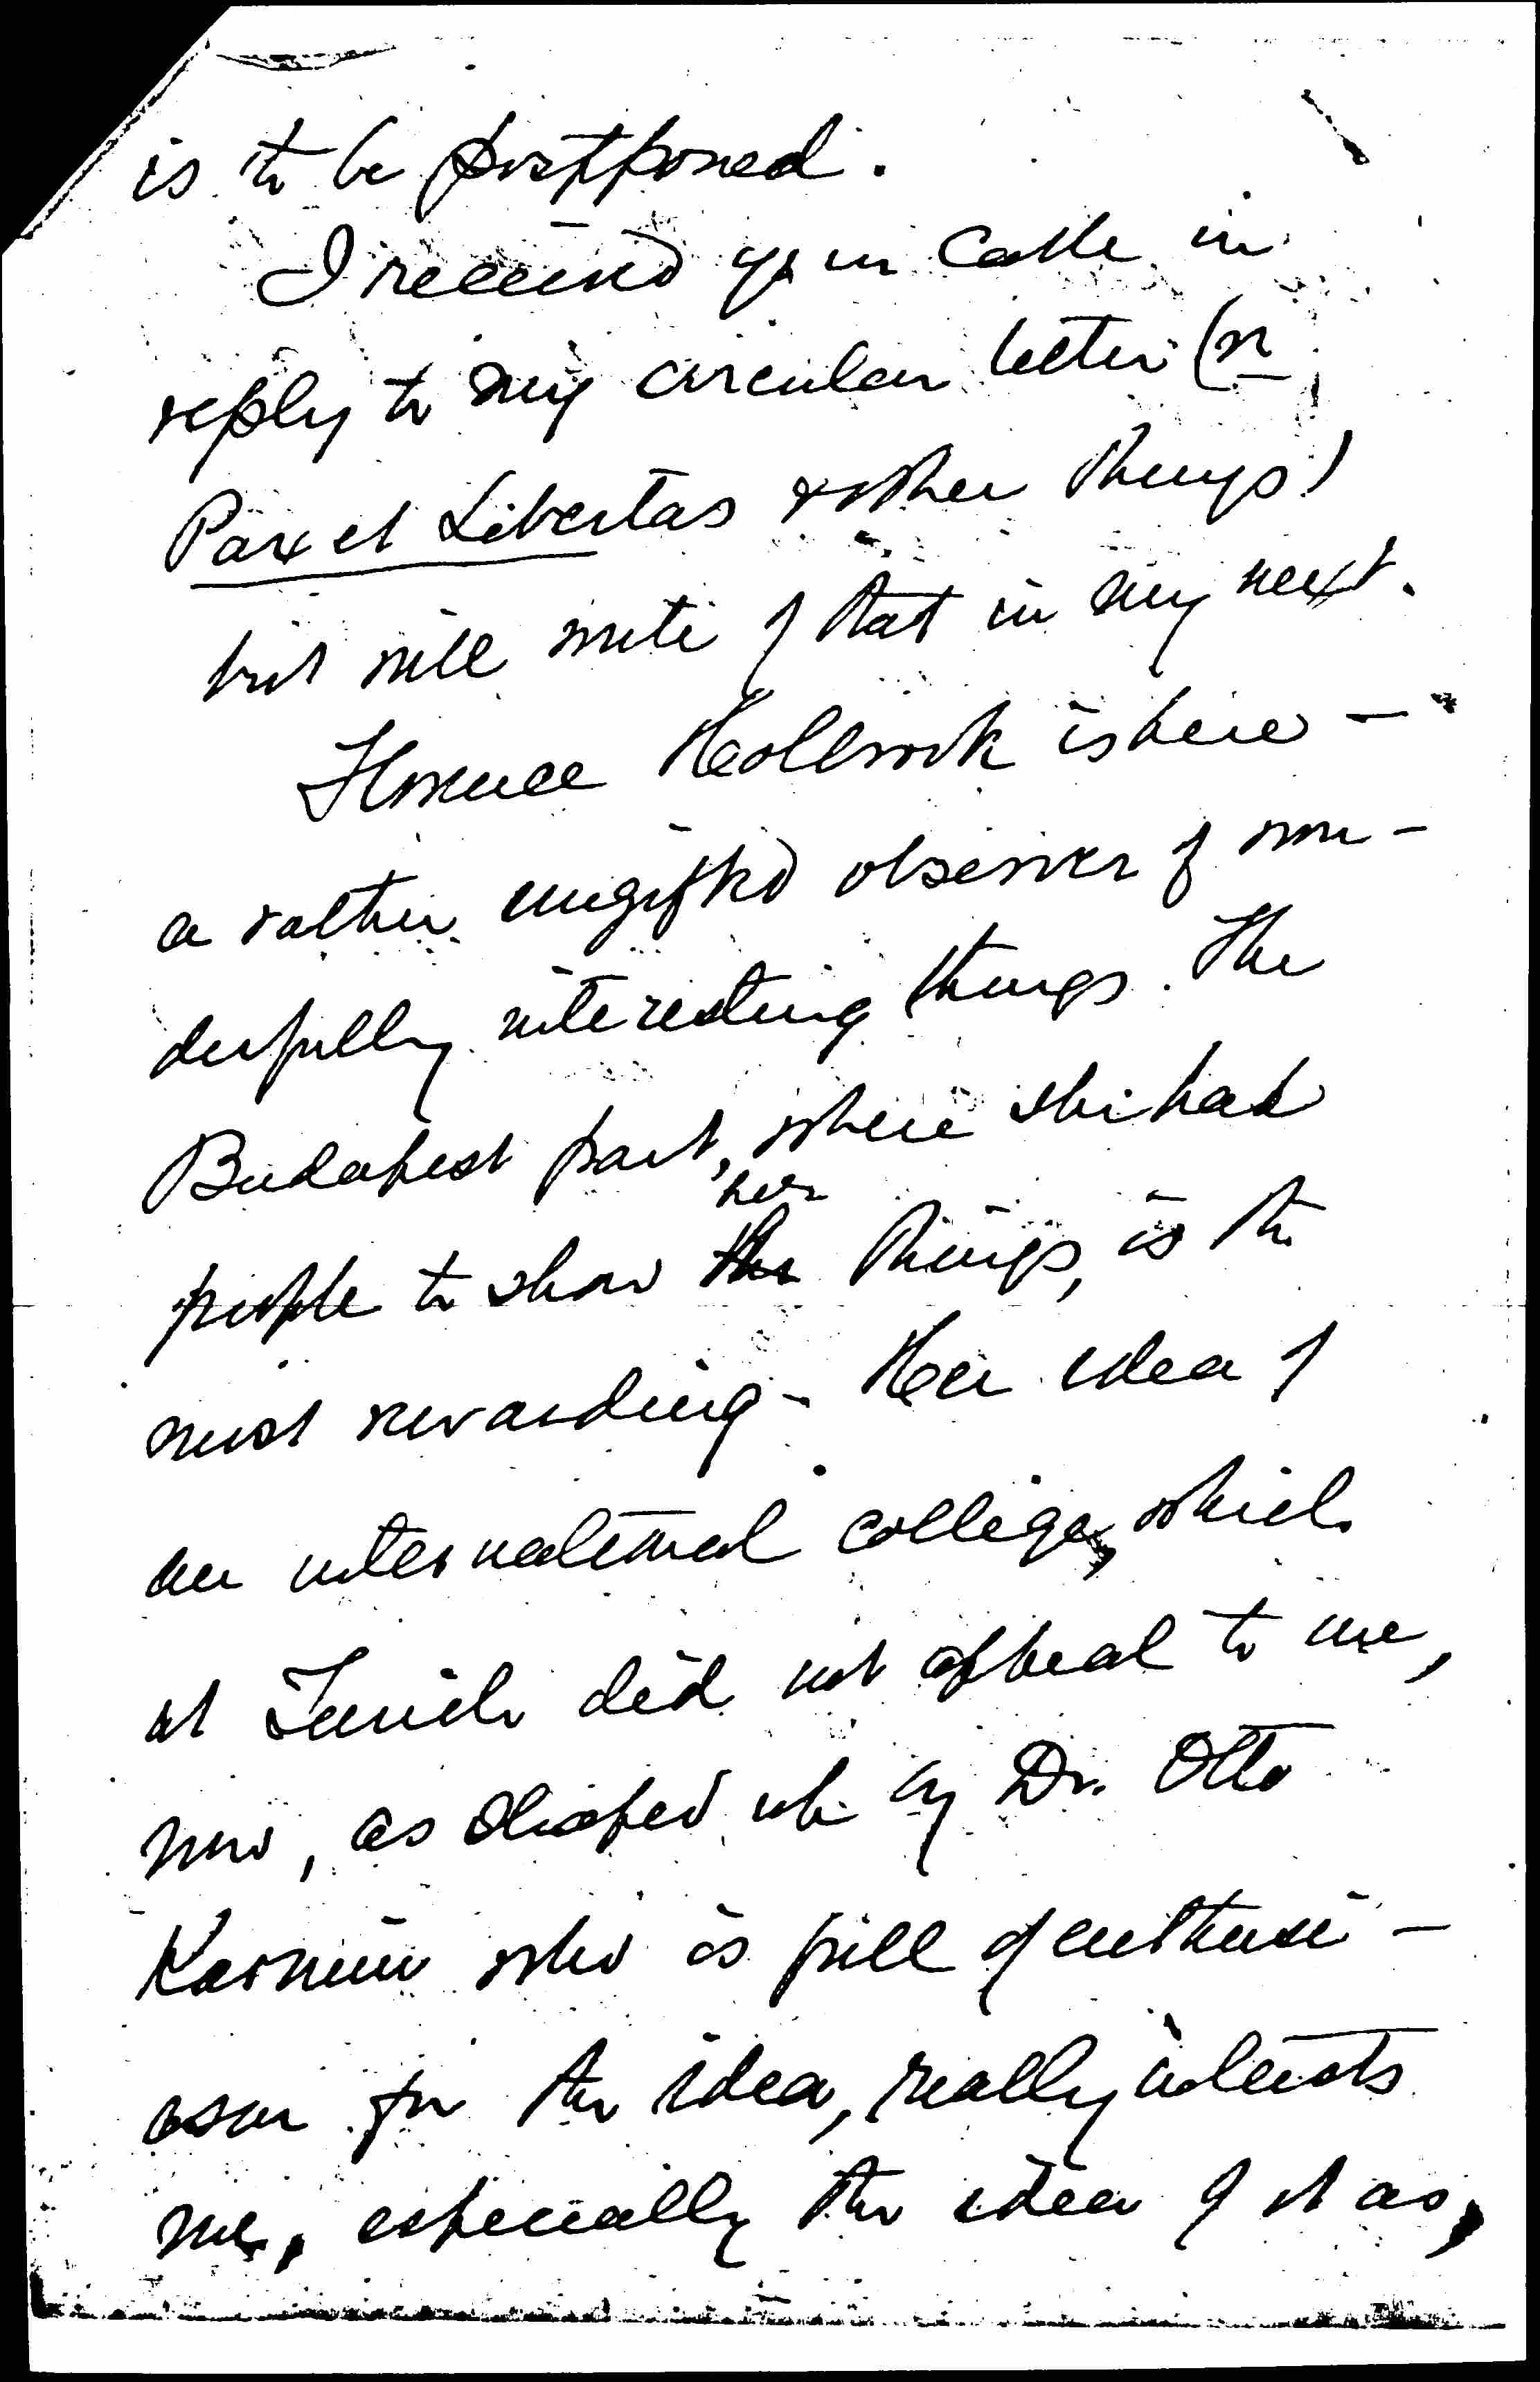 is to be postponed.
I received your cable in
reply to my circular letter (re
Pax et Libertas & other things)
but will write of that in my next.
Florence Holbrook is here —
a rather ungifted observer of won-
derfully interesting things. The
Budapest part, where she had
people to show her things, is the
most rewarding - Her idea of
an international college, which
at Zurich did not appeal to me,
now, as shaped up by Dr. Otto
who is full of enthusi-
asm for the idea, really interests
me, especially the idea of it as,